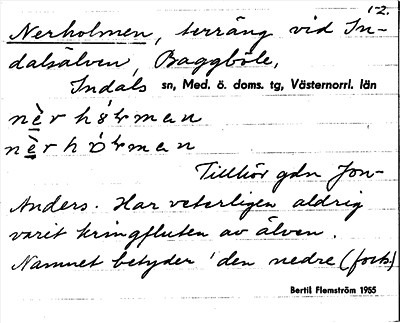 12.
Nerholmen, terräng vid In-
dalsälven, Baggböle,
Indals sn, Med. ö. doms. tg, Västernorrl. län
Tillhör gdn Jon-
Anders. Har veterligen aldrig
varit kringfluten av älven.
Namnet betyder 'den nedre (forts)
Bertil Flemström 1955